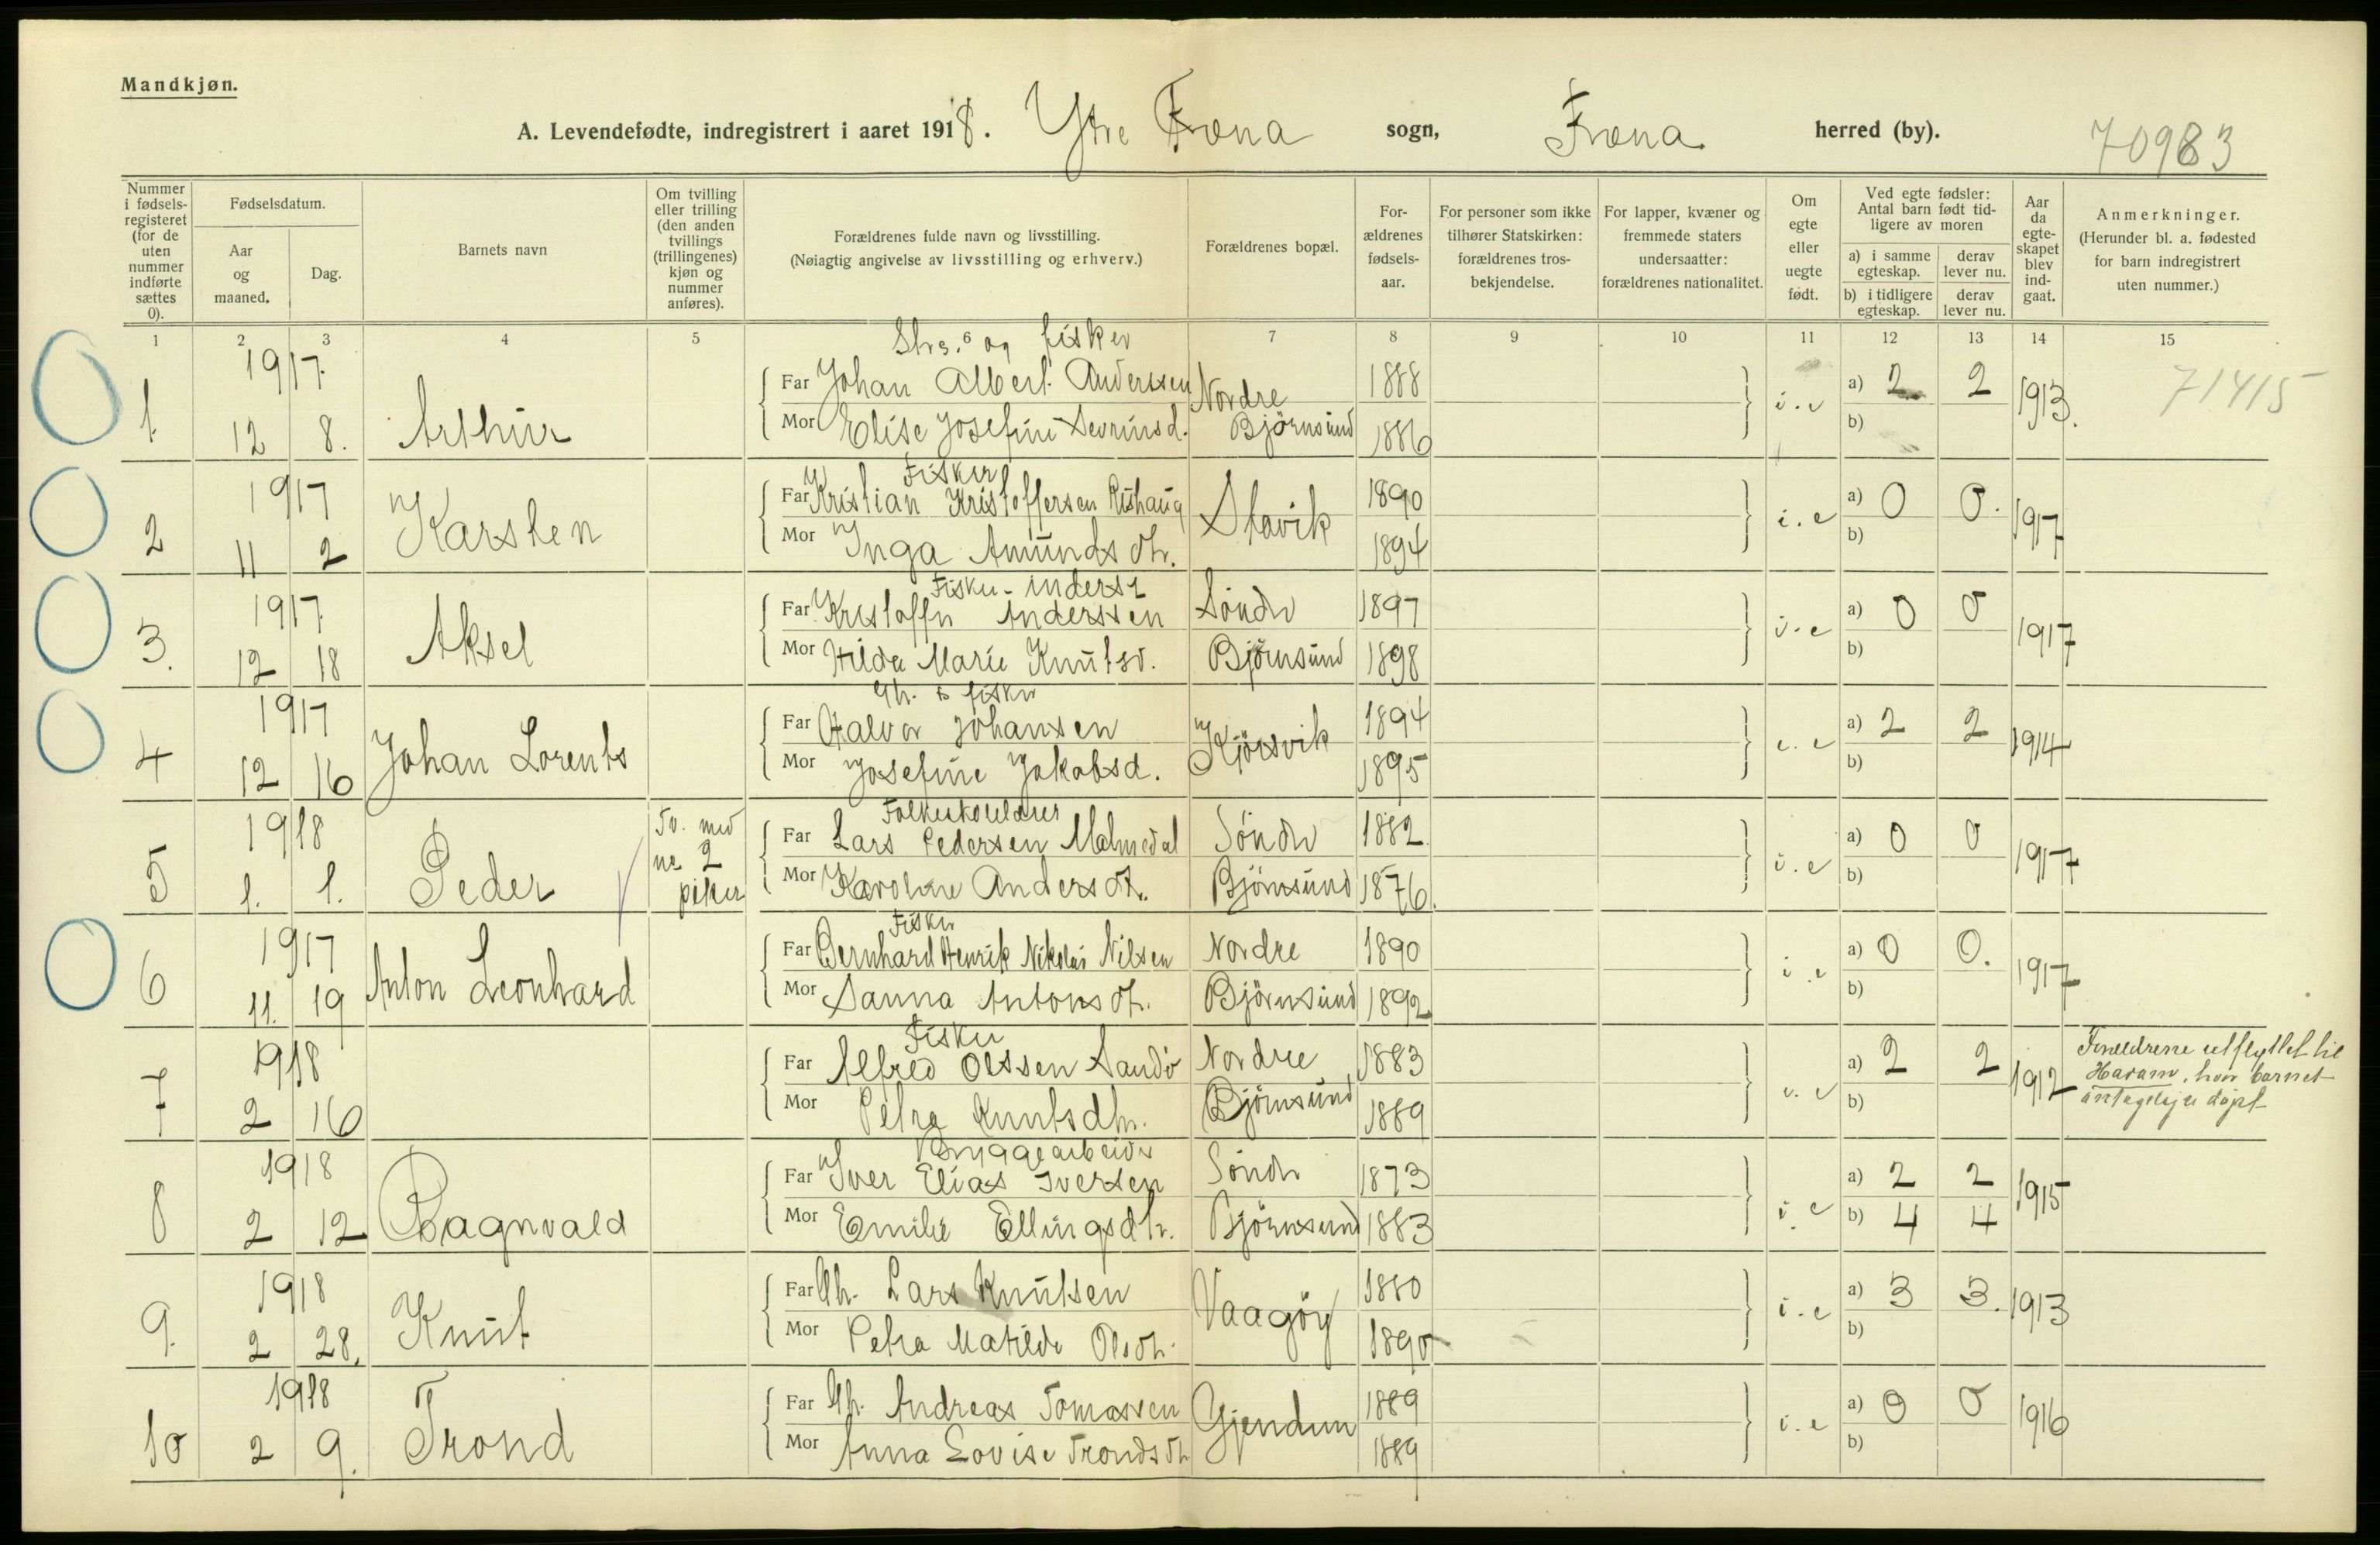 Mandkjøn.
A. Levendefødte, indregistrert i aaret 1918. Ytre Fræna sogn, Fræna herred (by). 70983
Nummer i fødsels-registeret (for de uten nummer indførte sættes 0).
Fødselsdatum.
Aar og maaned.
Dag.
Barnets navn
Om tvilling eller trilling (den anden tvillings (trillingenes) kjøn og nummer anføres).
Forældrenes fulde navn og livsstilling.
(Nøiagtig angivelse av livsstilling og erhverv.)
Forældrenes bopæl.
For-ældrenes fødsels-aar.
For personer som ikke tilhører Statskirken: forældrenes tros-bekjendelse.
For lapper, kvæner og fremmede staters undersaatter: forældrenes nationalitet.
Om egte eller uegte født.
Ved egte fødsler: Antal barn født tid-ligere av moren
a) i samme egteskap.
derav lever nu.
b) i tidligere egteskap.
derav lever nu.
Aar da egte-skapet blev ind-gaat.
Anmerkninger.
(Herunder bl. a. fødested for barn indregistrert uten nummer.)
1 2 3 4 5 6 7 8 9 10 11 12 13 14 15
Strs. og fisker
1917. Far Johan Albert Anderssen Nordre 1888 a) 2 2 71415
1 12 8. Arthur Mor Elise Josefine Sevrinsd. Bjørnsund 1886 i.e b) 1913.
Fisker
1917 Far Kristian Kristoffersen Rishaug Stavik 1890 a) 0 0.
2 11 2 Karsten Mor Inga Amundsdtr. 1894 i.e b) 1917
Fisker - inderst
1917 Far Kristoffer Anderssen Søndre 1897 a) 0 0
3. 12 18 Aksel Mor Hilda Marie Knutsd. Bjørnsund 1898 i.e b) 1917
Gbr. & fisker
1917 Far Halvor Johansen Kjørsvik 1894 a) 2 2
4 12 16 Johan Lorents Mor Josefine Jakobsd. 1895 e.e b) 1914
Folkeskolelærer
1918 Tv. med Far Lars Pedersen Malmedal Søndre 1882. a) 0 0
5 1. 1. Peder nr 2 piker Mor Karoline Andersdtr. Bjørnsund 1876. i.e b) 1917
Fisker
1917 Far Bernhard Henrik Nikolai Nilsen Nordre 1890 a) 0 0.
6 11. 19 Anton Leonhard Mor Sanna Antonsdtr. Bjørnsund 1892 i.e b) 1917
Fisker
1918 Far Alfred Olssen Sandø Nordre 1883 a) 2 2 Forældrene utflyttet til
7 2 16 Mor Petra Knutsdtr. Bjørnsund 1889 e.e b) 1912 Haram, hvor barnet
antagelig er døpt
Bryggearbeider
1918 Far Iver Elias Iversen Søndre 1873 a) 2 2
8 2 12 Ragnvald Mor Emilie Ellingsdtr. Bjørnsund 1883 i.e b) 4 4 1915
1918 Far Gbr. Lars Knutsen Vaagøy 1880 a) 3 3.
9. 2 28. Knut Mor Petra Matilde Olsdtr. 1890 i.e b) 1913
1918 Far Gbr. Andreas Tomassen Gjendem 1889 a) 0 0
10 2 9. Trond Mor Anna Lovise Trondsdtr 1889 i.e b) 1916